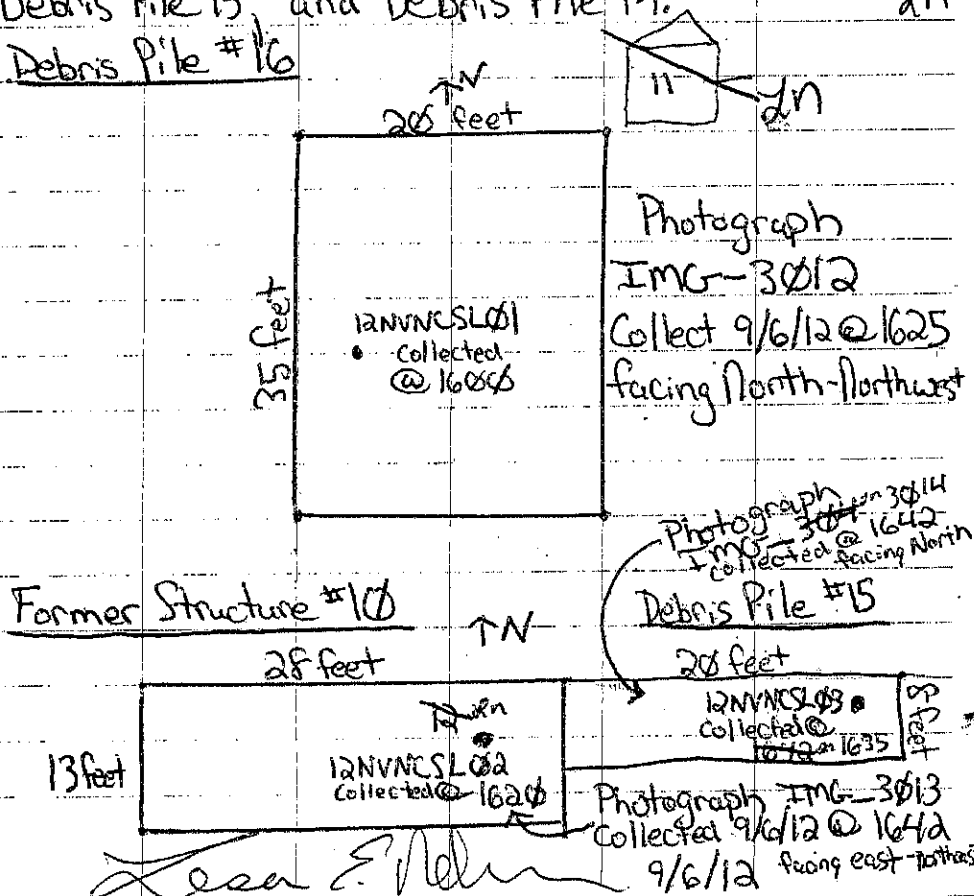 Debris Pile 15, and Debris Pile 14.
Debris Pile #16
↑N
20 feet
11 Ln
35 feet
12NVNCSL01
• Collected
@ 1600
Photograph
IMG-3012
Collect 9/6/12 @ 1625
facing North-Northwest
Photograph
IMG-3014
collected @ 1642
facing North
Former Structure #10
↑N
28 feet
13 feet
12 Ln
12NVNCSL02
Collected @ 1620
Debris Pile #15
20 feet
8 feet
12NVNCSL03 •
Collected @
1642 Ln 1635
Photograph IMG_3013
Collected 9/6/12 @ 1642
9/6/12 facing east-northeast